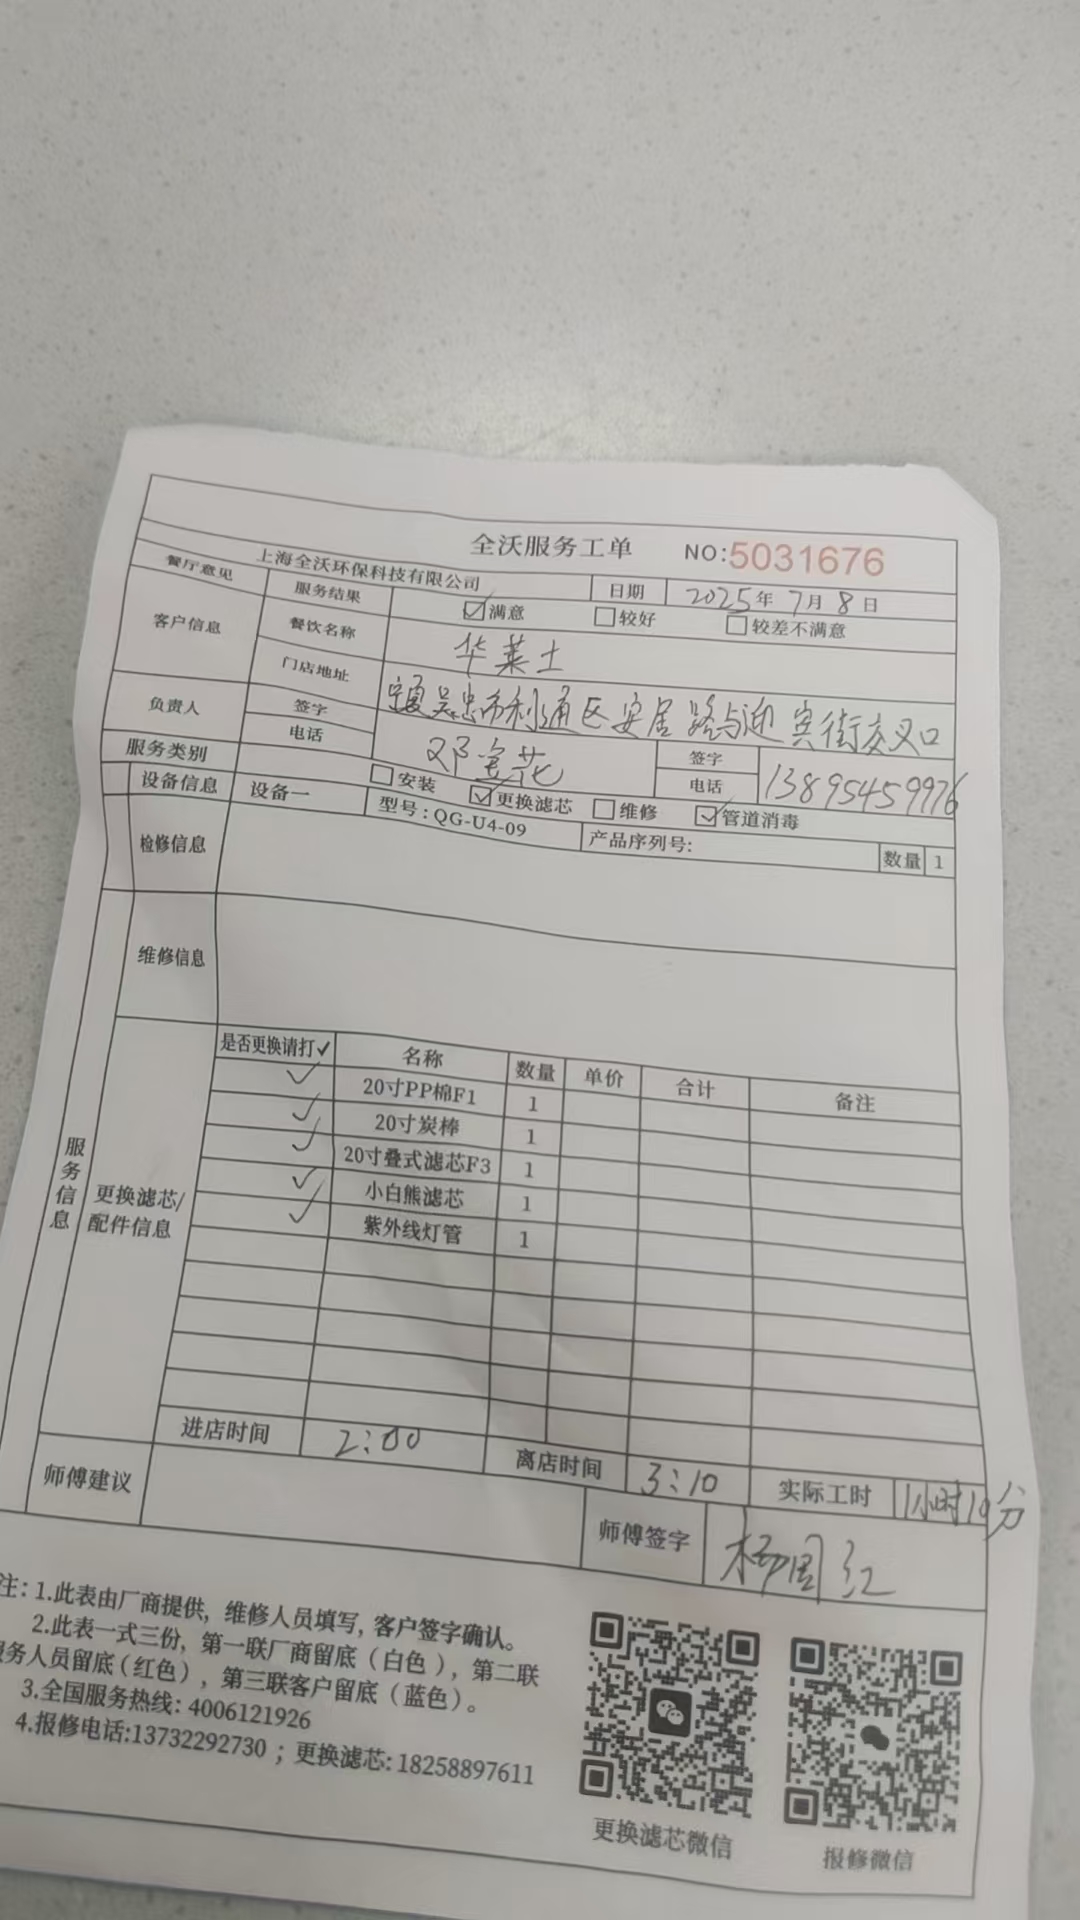 全沃服务工单 NO:5031676
上海全沃环保科技有限公司 日期 2025年7月8日
餐厅意见 服务结果 ☑满意 ☐较好 ☐较差不满意
客户信息 餐饮名称 华莱士
门店地址 宁夏吴忠市利通区安居路与迎宾街交叉口
负责人 签字 邓宝花 签字
电话 电话 13895459976
服务类别 ☐安装 ☑更换滤芯 ☐维修 ☑管道消毒
设备信息 设备一 型号:QG-U4-09 产品序列号: 数量 1
检修信息
维修信息
服务信息
更换滤芯/配件信息
是否更换请打✓ 名称 数量 单价 合计 备注
✓ 20寸PP棉F1 1
✓ 20寸炭棒 1
✓ 20寸叠式滤芯F3 1
✓ 小白熊滤芯 1
✓ 紫外线灯管 1
进店时间 2:00 离店时间 3:10 实际工时 1小时10分
师傅建议 师傅签字 杨周红
注:1.此表由厂商提供,维修人员填写,客户签字确认。
2.此表一式三份,第一联厂商留底(白色),第二联
服务人员留底(红色),第三联客户留底(蓝色)。
3.全国服务热线:4006121926
4.报修电话:13732292730;更换滤芯:18258897611
更换滤芯微信 报修微信